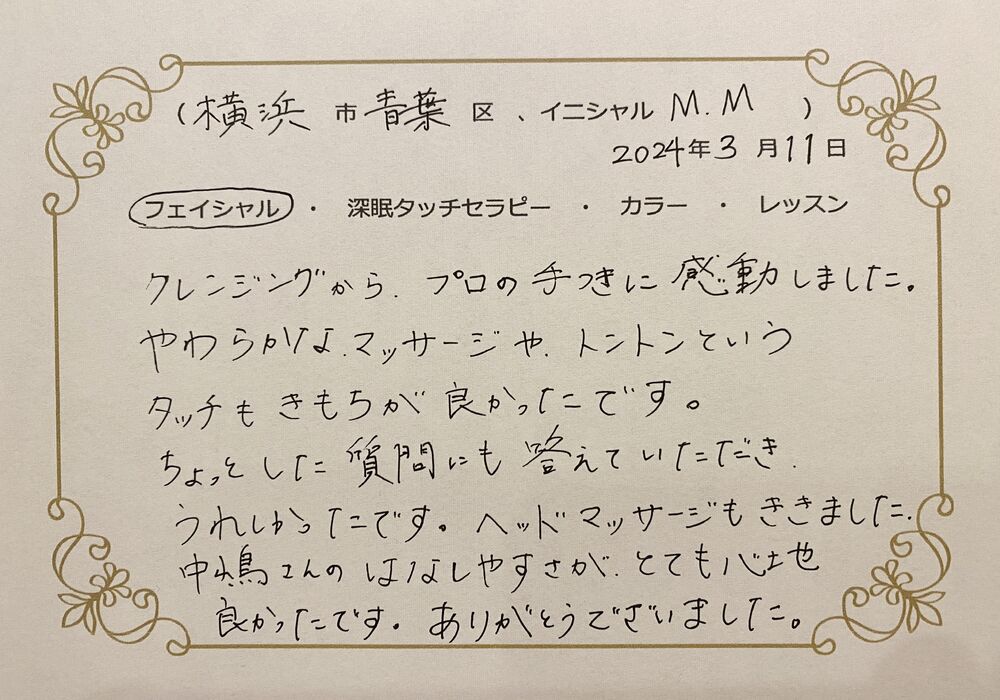 (横浜 市 青葉 区 、イニシャル M.M )
2024年3月11日
フェイシャル ・ 深眠タッチセラピー ・ カラー ・ レッスン
クレンジングから、プロの手つきに感動しました。
やわらかな、マッサージや、トントンという
タッチもきもちが良かったです。
ちょっとした質問にも答えていただき、
うれしかったです。ヘッドマッサージもききました。
中嶋さんのはなしやすさが、とても心地
良かったです。ありがとうございました。